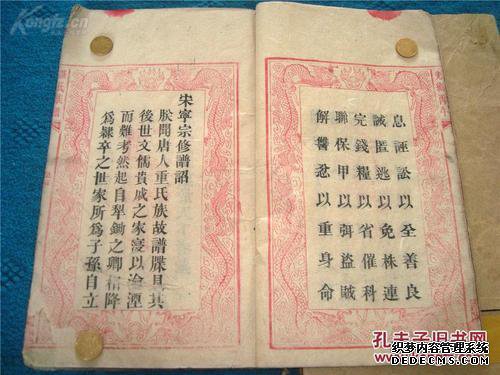 Kongfz.com
息誣訟以全善良
誡匿逃以免株連
完錢糧以省催科
聯保甲以弭盜賊
解讐忿以重身命
宋寧宗修譜詔
朕聞唐人重氏族故譜牒具其
後世文儒貴戚之家寖以淪湮
而難考然起自犁鋤之卿相降
爲隸卒之世家所爲子孫自立
孔夫子旧书网
织梦内容管理系统
DEDECMS.COM